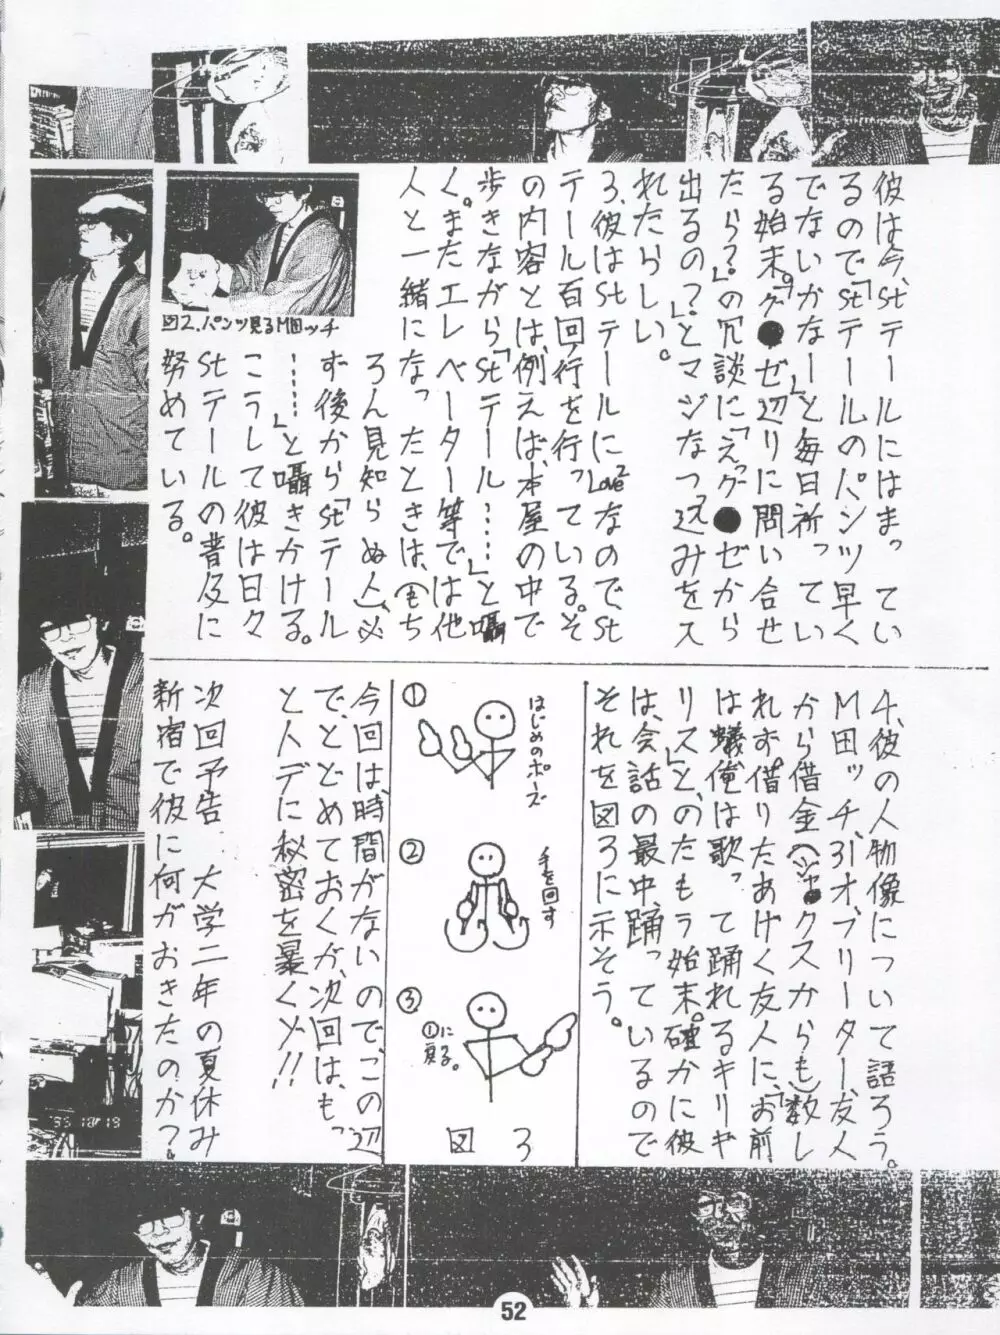 彼は今、stテールにはまってい
るので「stテールのパンツ早く
でないかなー」と毎日祈ってい
る始末。「グ●ゼ辺りに問い合せ
たら?」の冗談に「えっグ●ゼから
出るの?」とマジなつっ込みをス
れたらしい。
3、彼はstテールにLove²なのでst
テール百回行を行っている。そ
の内容とは、例えば、本屋の中で
歩きながら「stテール……」と囁
く。またエレベーター等では他
人と一緒になったときは、(もち
ろん見知らぬ人)、必
ず後から「stテール
……」と囁きかける。
こうして彼は日々
stテールの普及に
努めている。
図2.パンツ見るM田ッチ
4、彼の人物像について語ろう。
M田ッチ、31才、フリーター、友人
から借金(ジャ●クスからも)数し
れず。借りたあげく友人に、「お前
は蟻、俺は歌って踊れるキリギ
リス」と、のたもう始末。確かに彼
は、会話の最中、踊っているので
それを図3に示そう。
①
はじめのポーズ
②
手を回す
③
①に
戻る。
図 3
今回は、時間がないので、この辺
で、とどめておくが、次回は、もっ
と人デに秘密を暴くゾ!!
次回予告 大学二年の夏休み
新宿で彼に何がおきたのか?
52